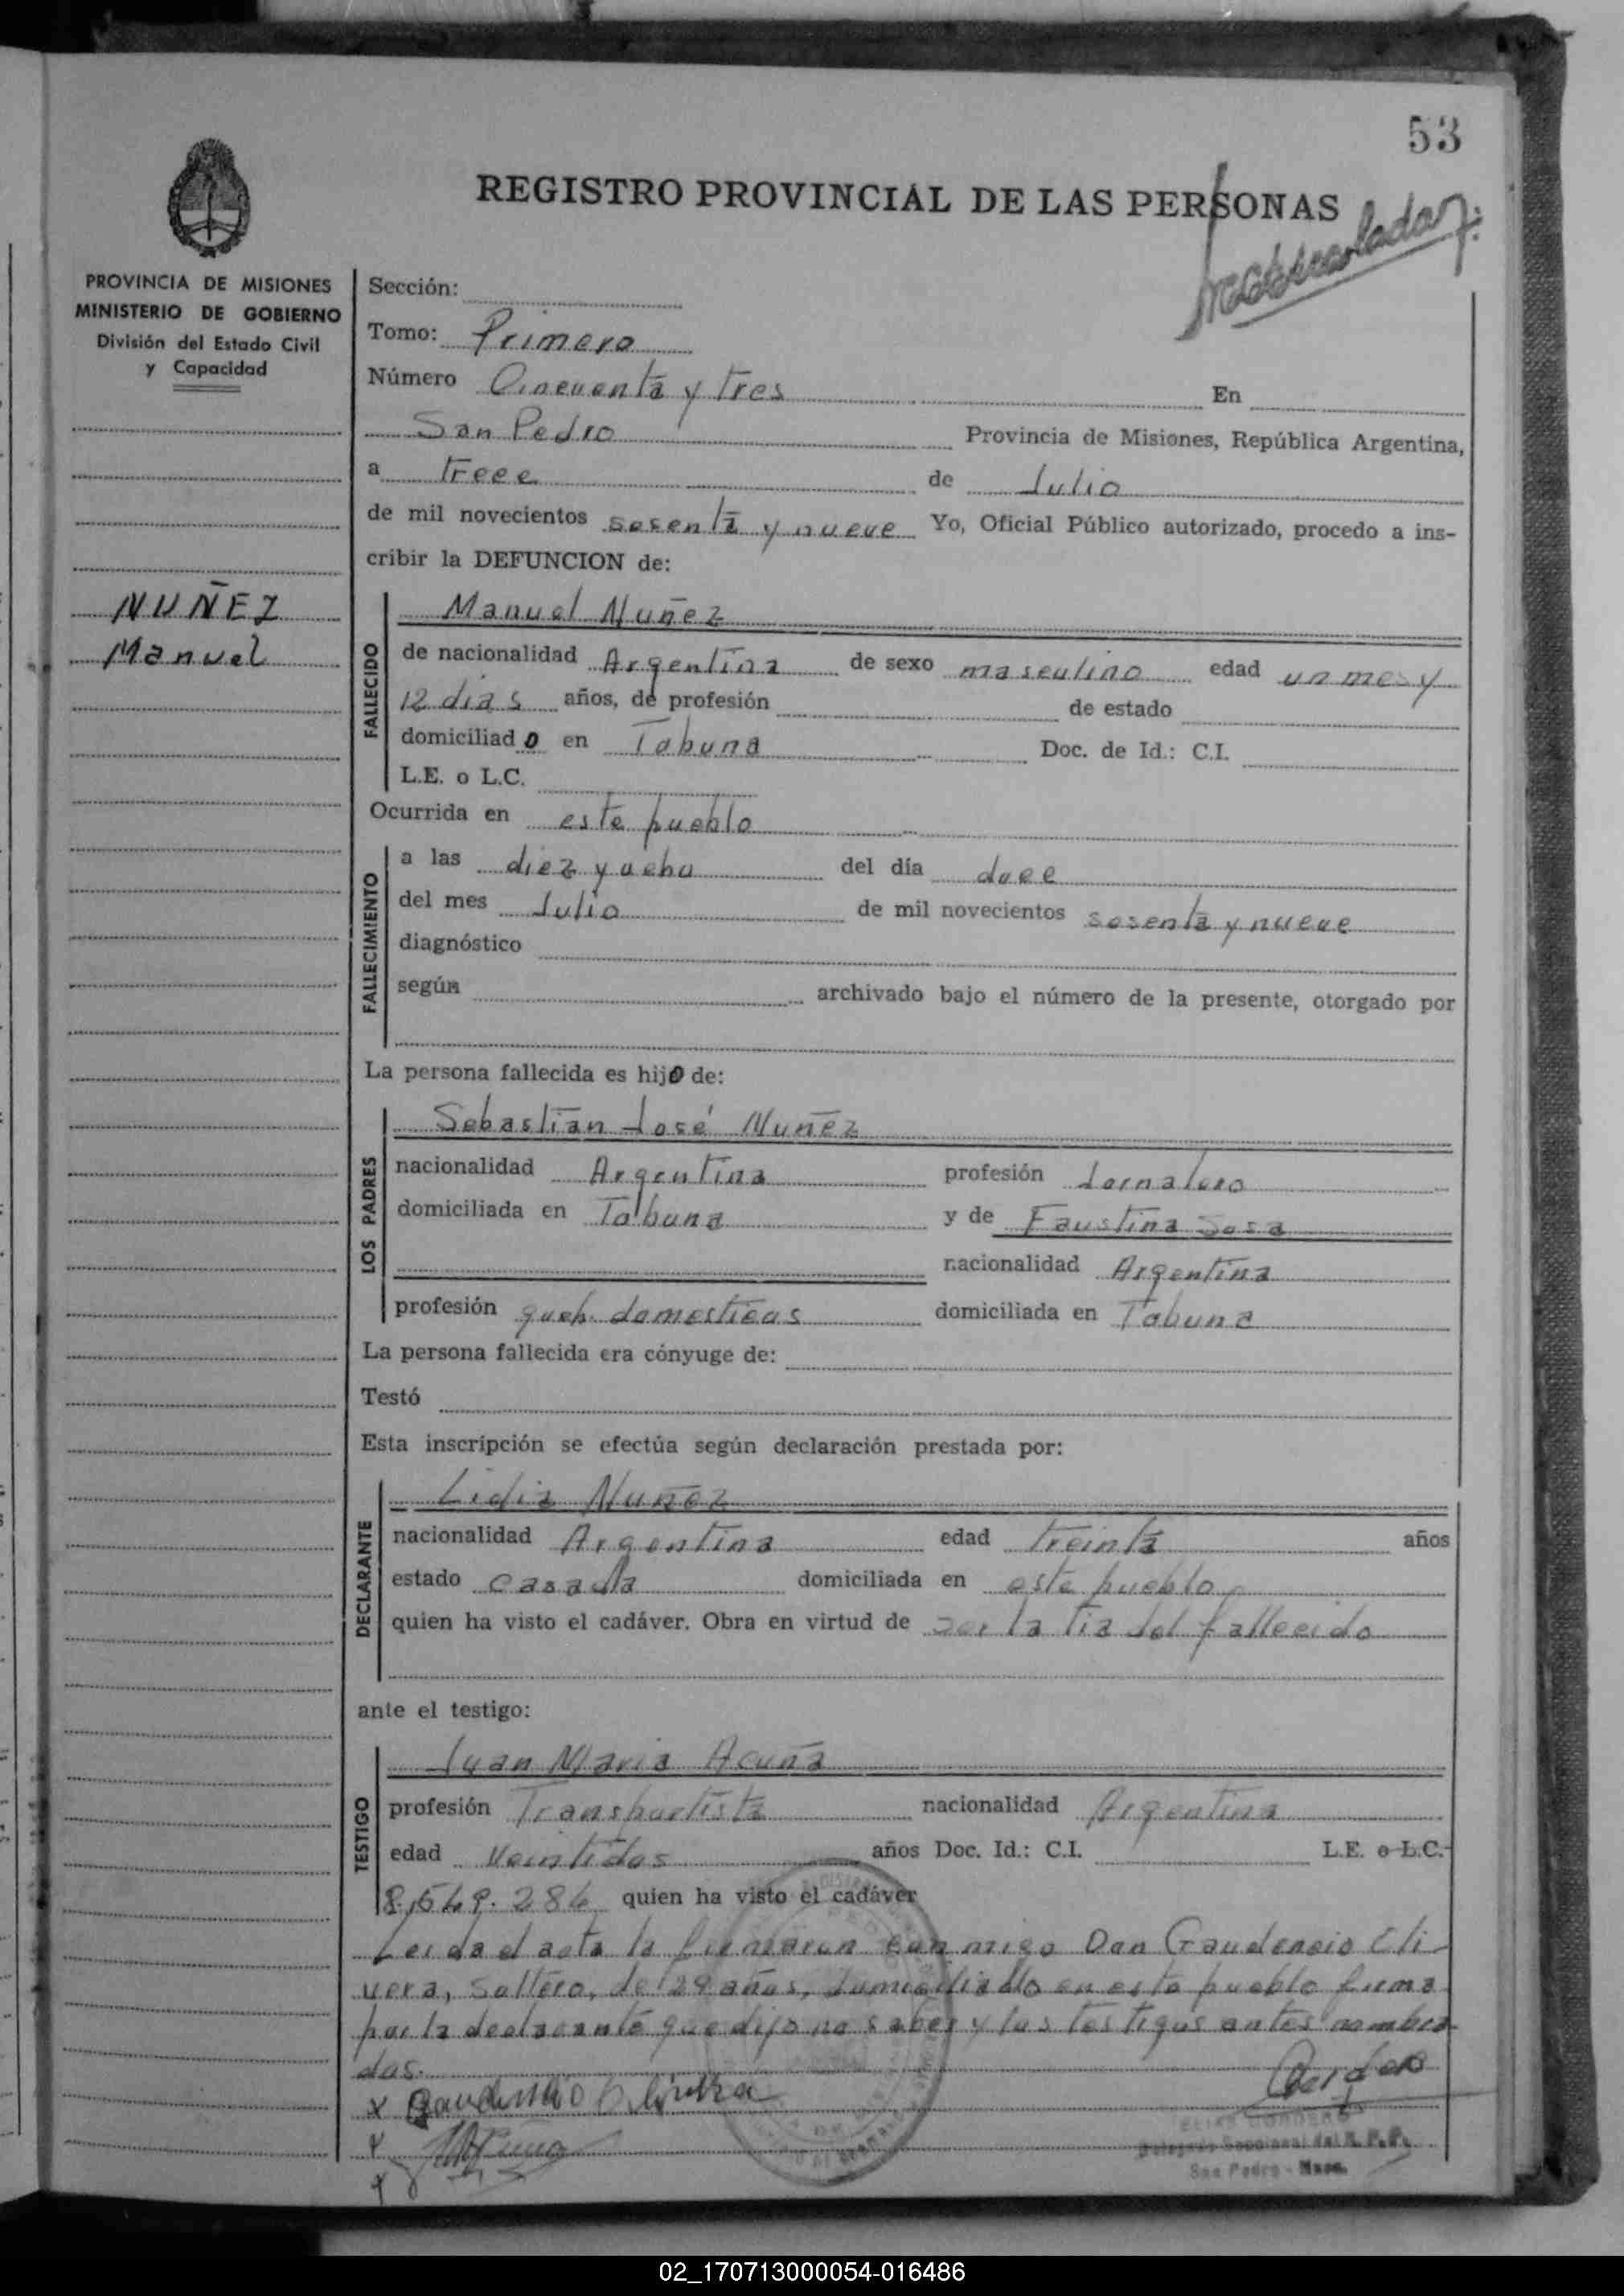 53
REGISTRO PROVINCIAL DE LAS PERSONAS
PROVINCIA DE MISIONES
MINISTERIO DE GOBIERNO
División del Estado Civil
y Capacidad
NUÑEZ
Manuel
Sección:
Tomo: Primero
Número Cincuenta y tres En
San Pedro Provincia de Misiones, República Argentina,
a trece de Julio
de mil novecientos sesenta y nueve Yo, Oficial Público autorizado, procedo a ins-
cribir la DEFUNCION de:
FALLECIDO
Manuel Nuñez
de nacionalidad Argentina de sexo masculino edad un mes y
12 dias años, de profesión de estado
domiciliado en Tabuna Doc. de Id.: C.I.
L.E. o L.C.
Ocurrida en este pueblo
FALLECIMIENTO
a las diez y ocho del día doce
del mes Julio de mil novecientos sesenta y nueve
diagnóstico
según archivado bajo el número de la presente, otorgado por
La persona fallecida es hijo de:
LOS PADRES
Sebastian José Nuñez
nacionalidad Argentina profesión Jornalero
domiciliada en Tabuna y de Faustina Sosa
nacionalidad Argentina
profesión queh. domesticos domiciliada en Tabuna
La persona fallecida era cónyuge de:
Testó
Esta inscripción se efectúa según declaración prestada por:
DECLARANTE
Lidia Nuñez
nacionalidad Argentina edad treinta años
estado casada domiciliada en este pueblo
quien ha visto el cadáver. Obra en virtud de ser la tia del fallecido
ante el testigo:
TESTIGO
Juan Maria Acuña
profesión Transportista nacionalidad Argentina
edad Veintidos años Doc. Id.: C.I. L.E. o L.C.
quien ha visto el cadáver
Leida el acta la firmaron conmigo Don Gaudencio Oli-
vera, soltero, de 29 años, domiciliado en este pueblo firma
por la declarante que dijo no saber y los testigos antes nombra
dos.
Gaudencio Olivera
Cordero
ELIAS CORDERO
Delegado Seccional del R. P. P.
San Pedro - Mnes.
02_170713000054-016486